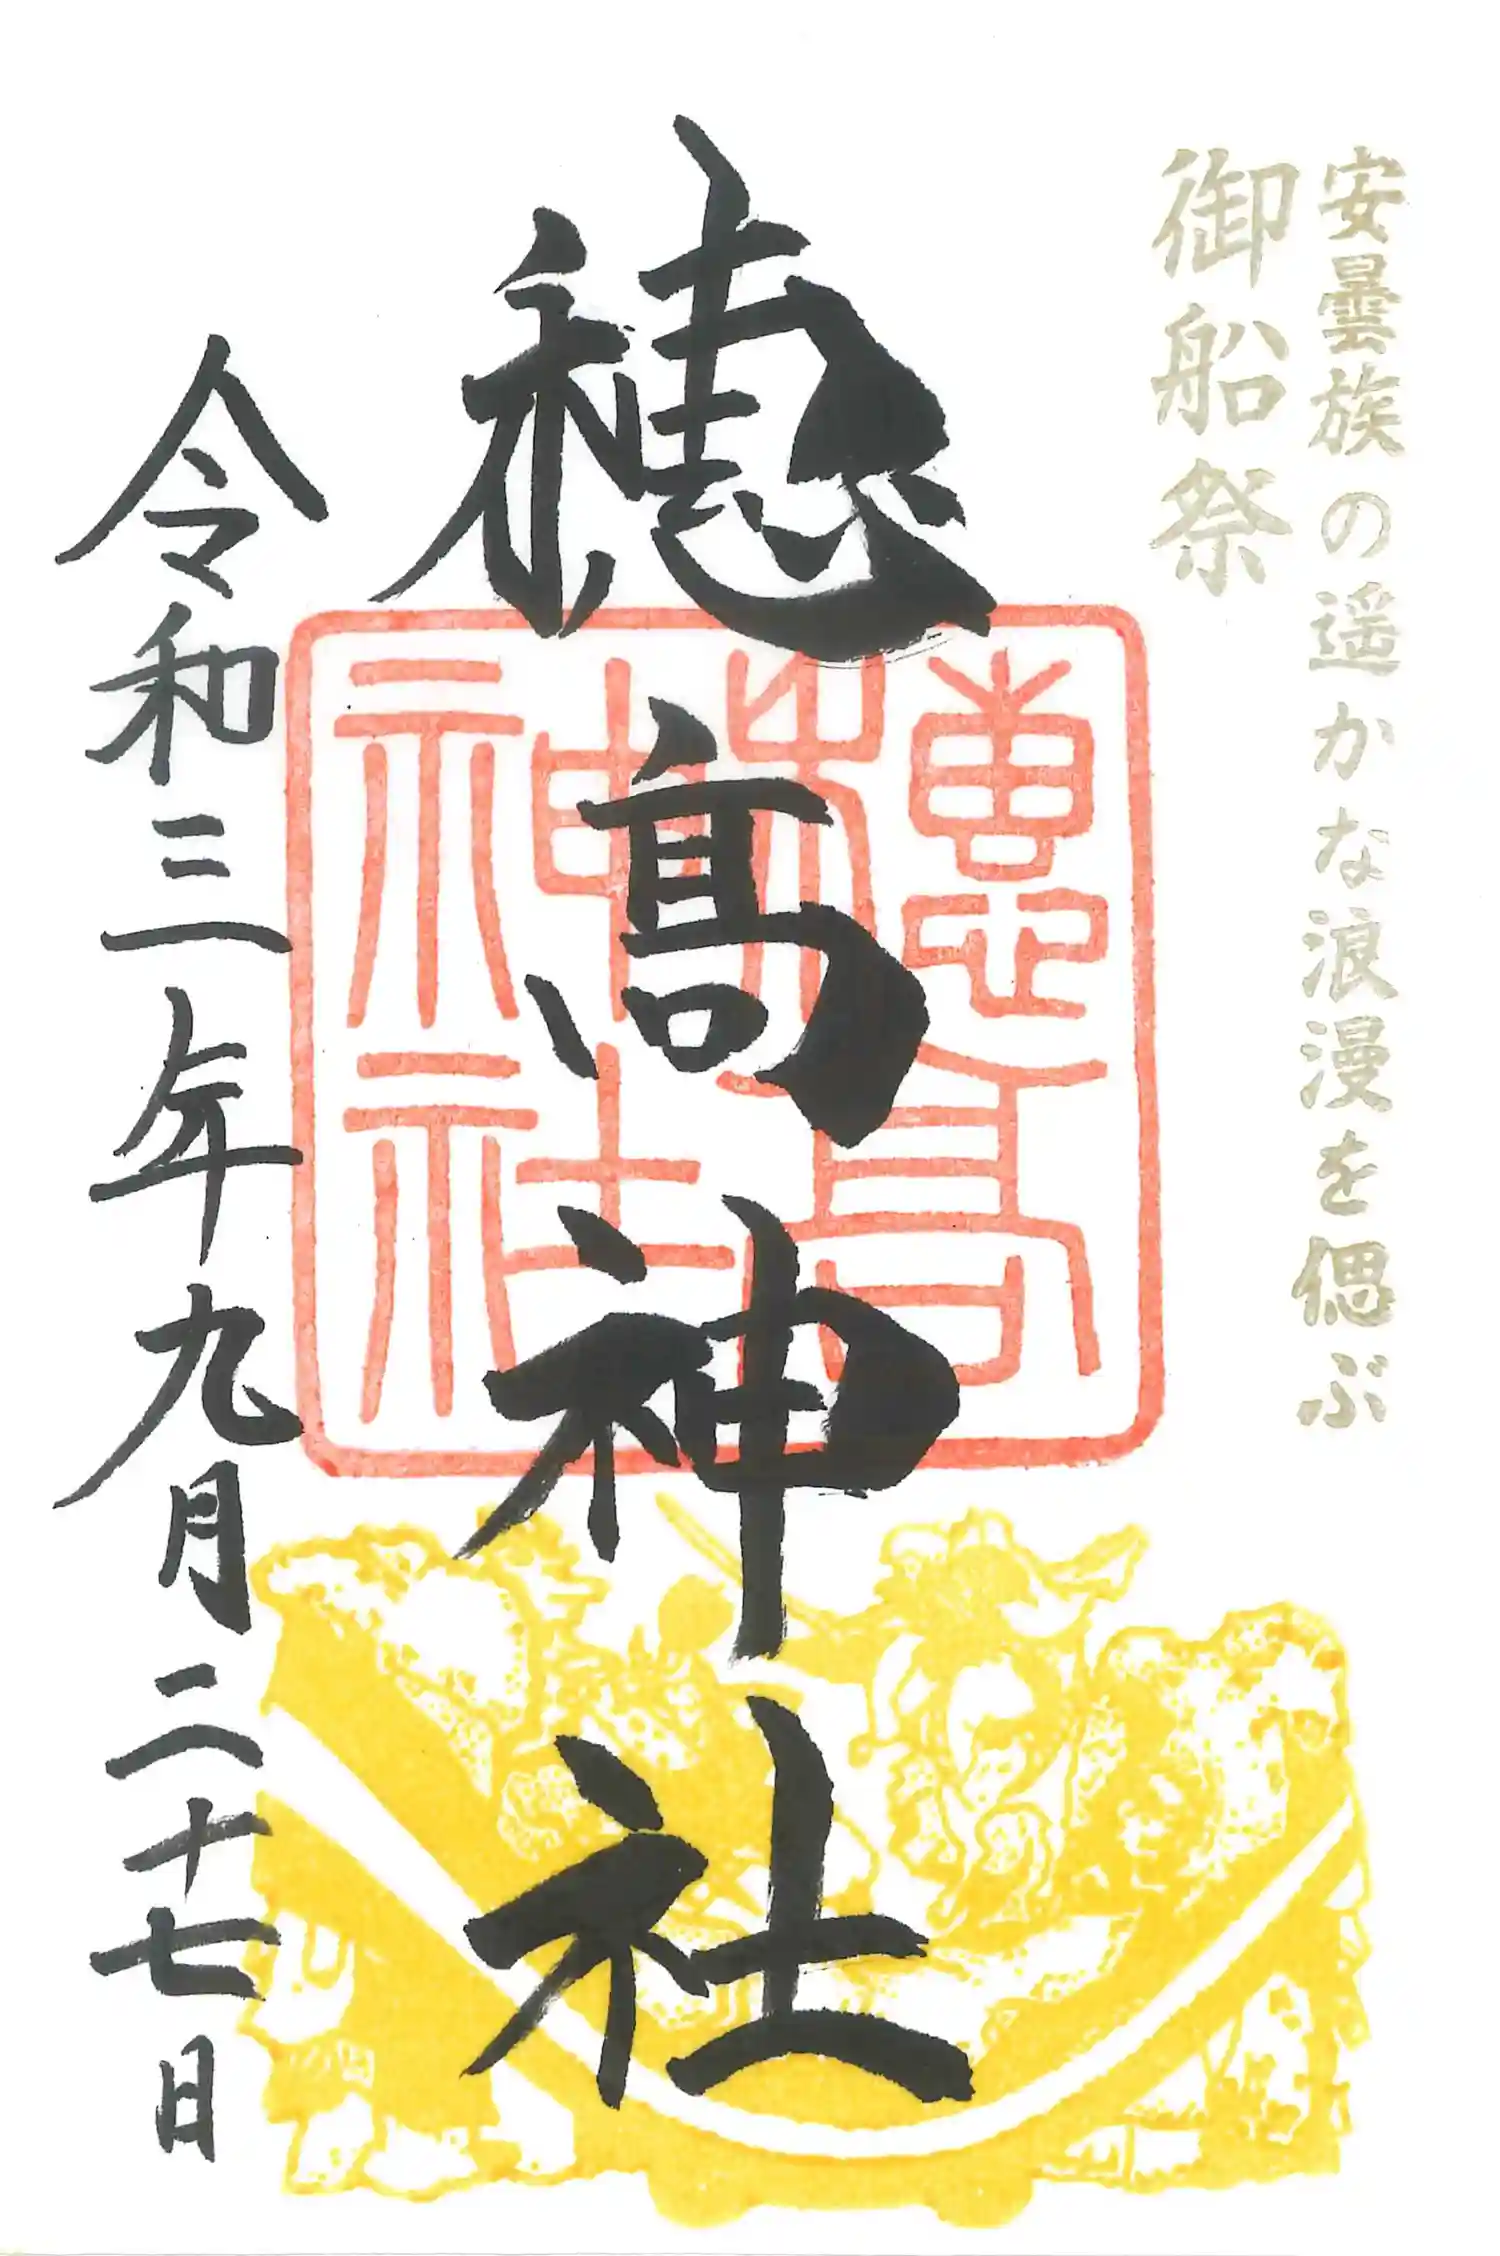 安曇族の遥かな浪漫を偲ぶ
御船祭
穂髙神社
穂高
神社
令和三年九月二十七日